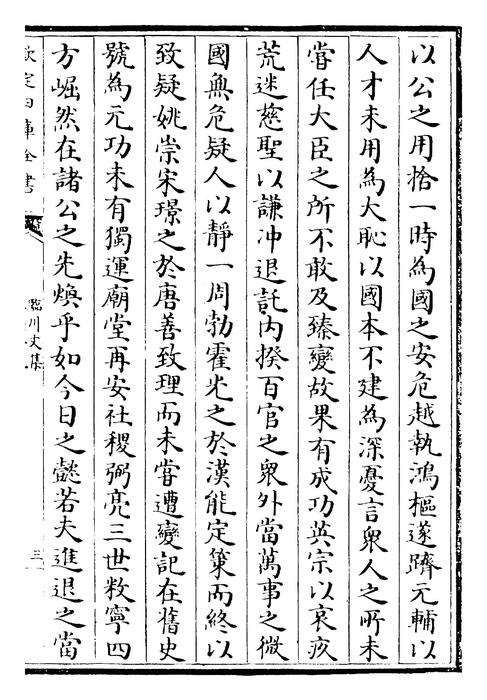 以公之用捨一時為國之安危越執鴻樞遂躋元輔以
人才未用為大恥以國本不建為深憂言衆人之所未
嘗任大臣之所不敢及臻變故果有成功英宗以哀疚
荒迷慈聖以謙沖退託内揆百官之衆外當萬事之微
國無危疑人以靜一周勃霍光之於漢能定策而終以
致疑姚崇宋璟之於唐善致理而未嘗遭變記在舊史
號為元功未有獨運廟堂再安社稷弼亮三世敉寧四
方崛然在諸公之先煥乎如今日之懿若夫進退之當
欽定四庫全書
臨川文集
三